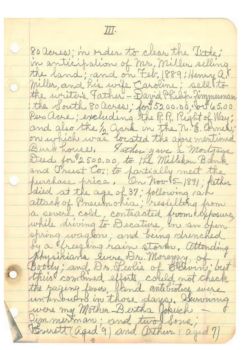 III.
80 Acres; in order to clear the Title;
in anticipation of Mr. Miller selling
the land; and on Feb. 1889; Henry A.
Miller, and his wife Caroline; sell to
the writers Father - David Philip Zimmerman
the South 80 Acres; for $5200.00, or $65.00
Per Acre; excluding the R.R. Right of Way;
and also the ½ Acre in the N.E. Corner;
on which was located the aforementioned
Church house. Father gave a Mortgage
Deed for $2500.00, to the Milliken Bank
and Trust Co; to partially meet the
purchase price. On Nov. 1891, Father
died at the age of 37; following an
attack of Pneumonia; resulting from
a severe cold, contracted from exposure
while driving to Decatur, in an open
spring wagon; and being drenched
by a freezing rain storm. Attending
physicians were Drs.
and Dr. of but
their combined efforts could not check
the raging fever, and antibiotics were
unknown in those days. Surviving
were my Mother - Bertha
Zimmerman; and two sons;
(Aged 9) and Arthur (aged 7)